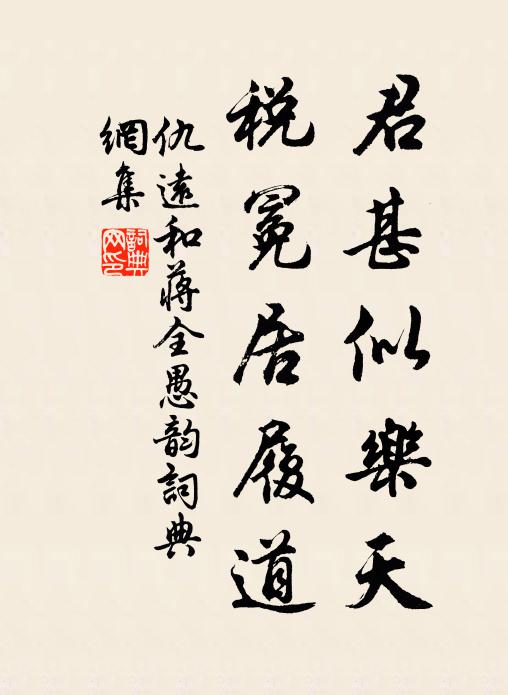 君甚似樂天
税冕居履道
仇遠和蔣全愚韵詞典
網集
詞典
网印